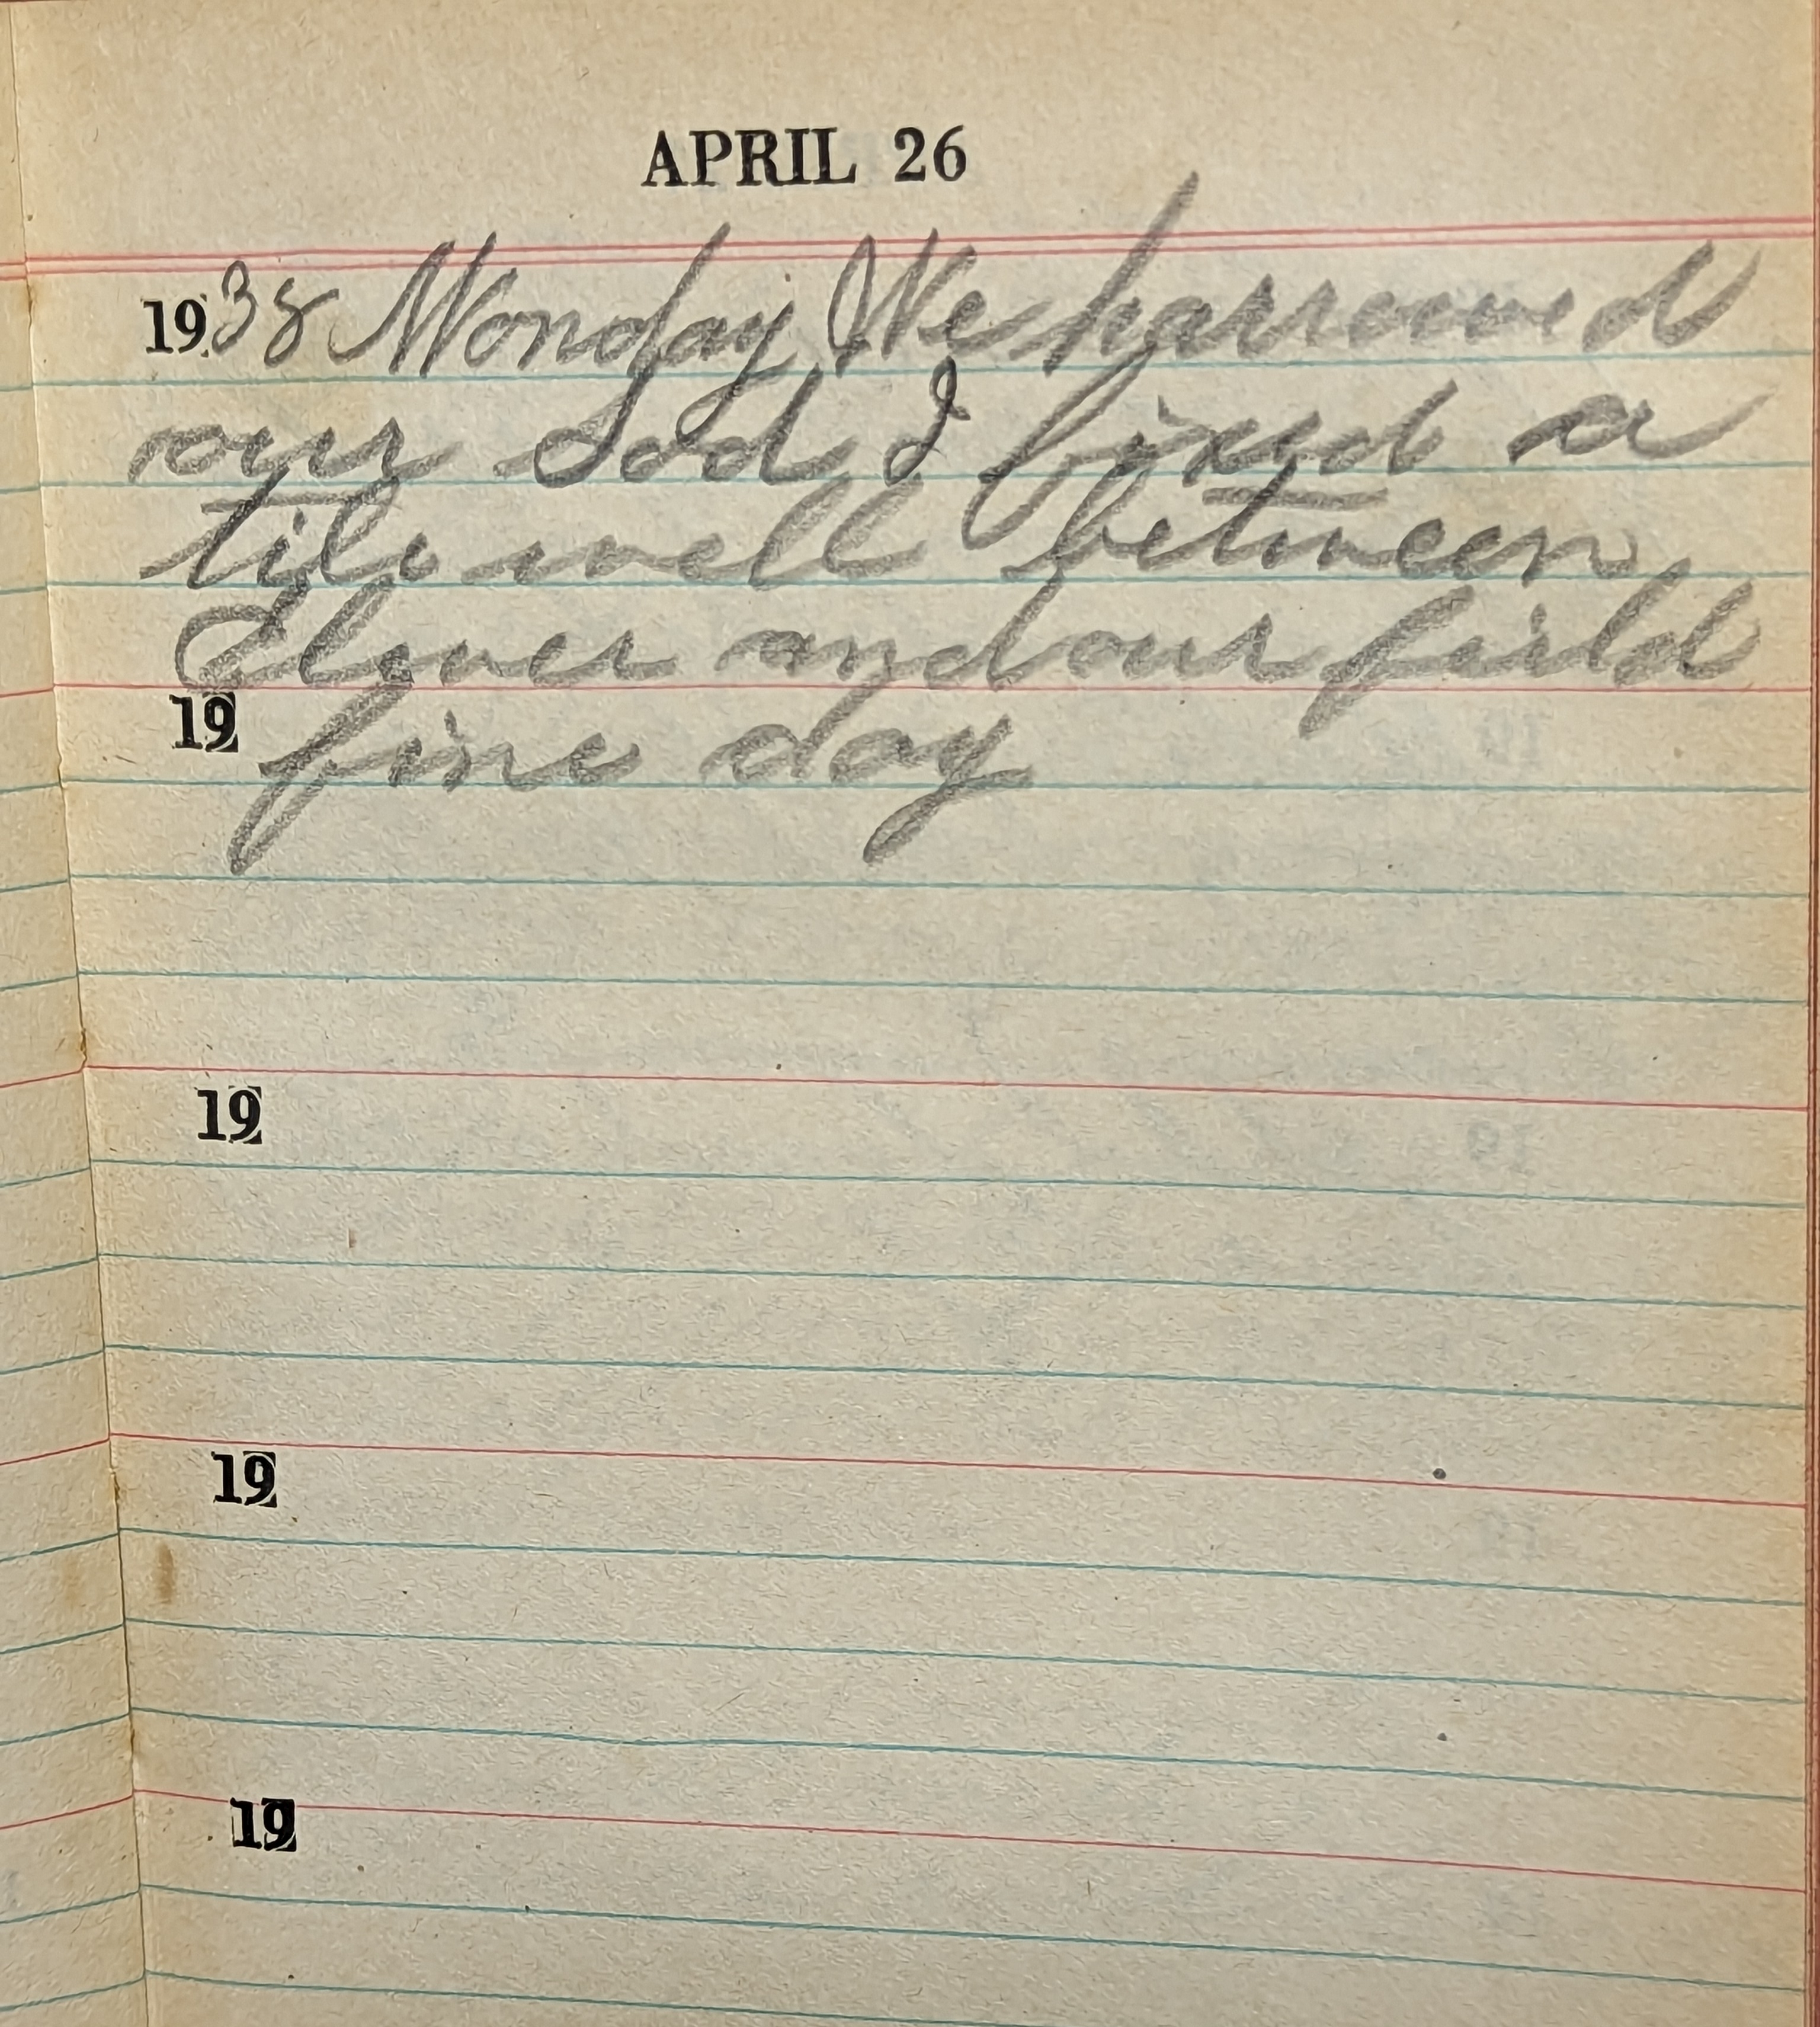 APRIL 26
1938 Monday We harrowed
our Sod & fixed a
tile well between
Clover and our feild
19 fine day
19
19
19